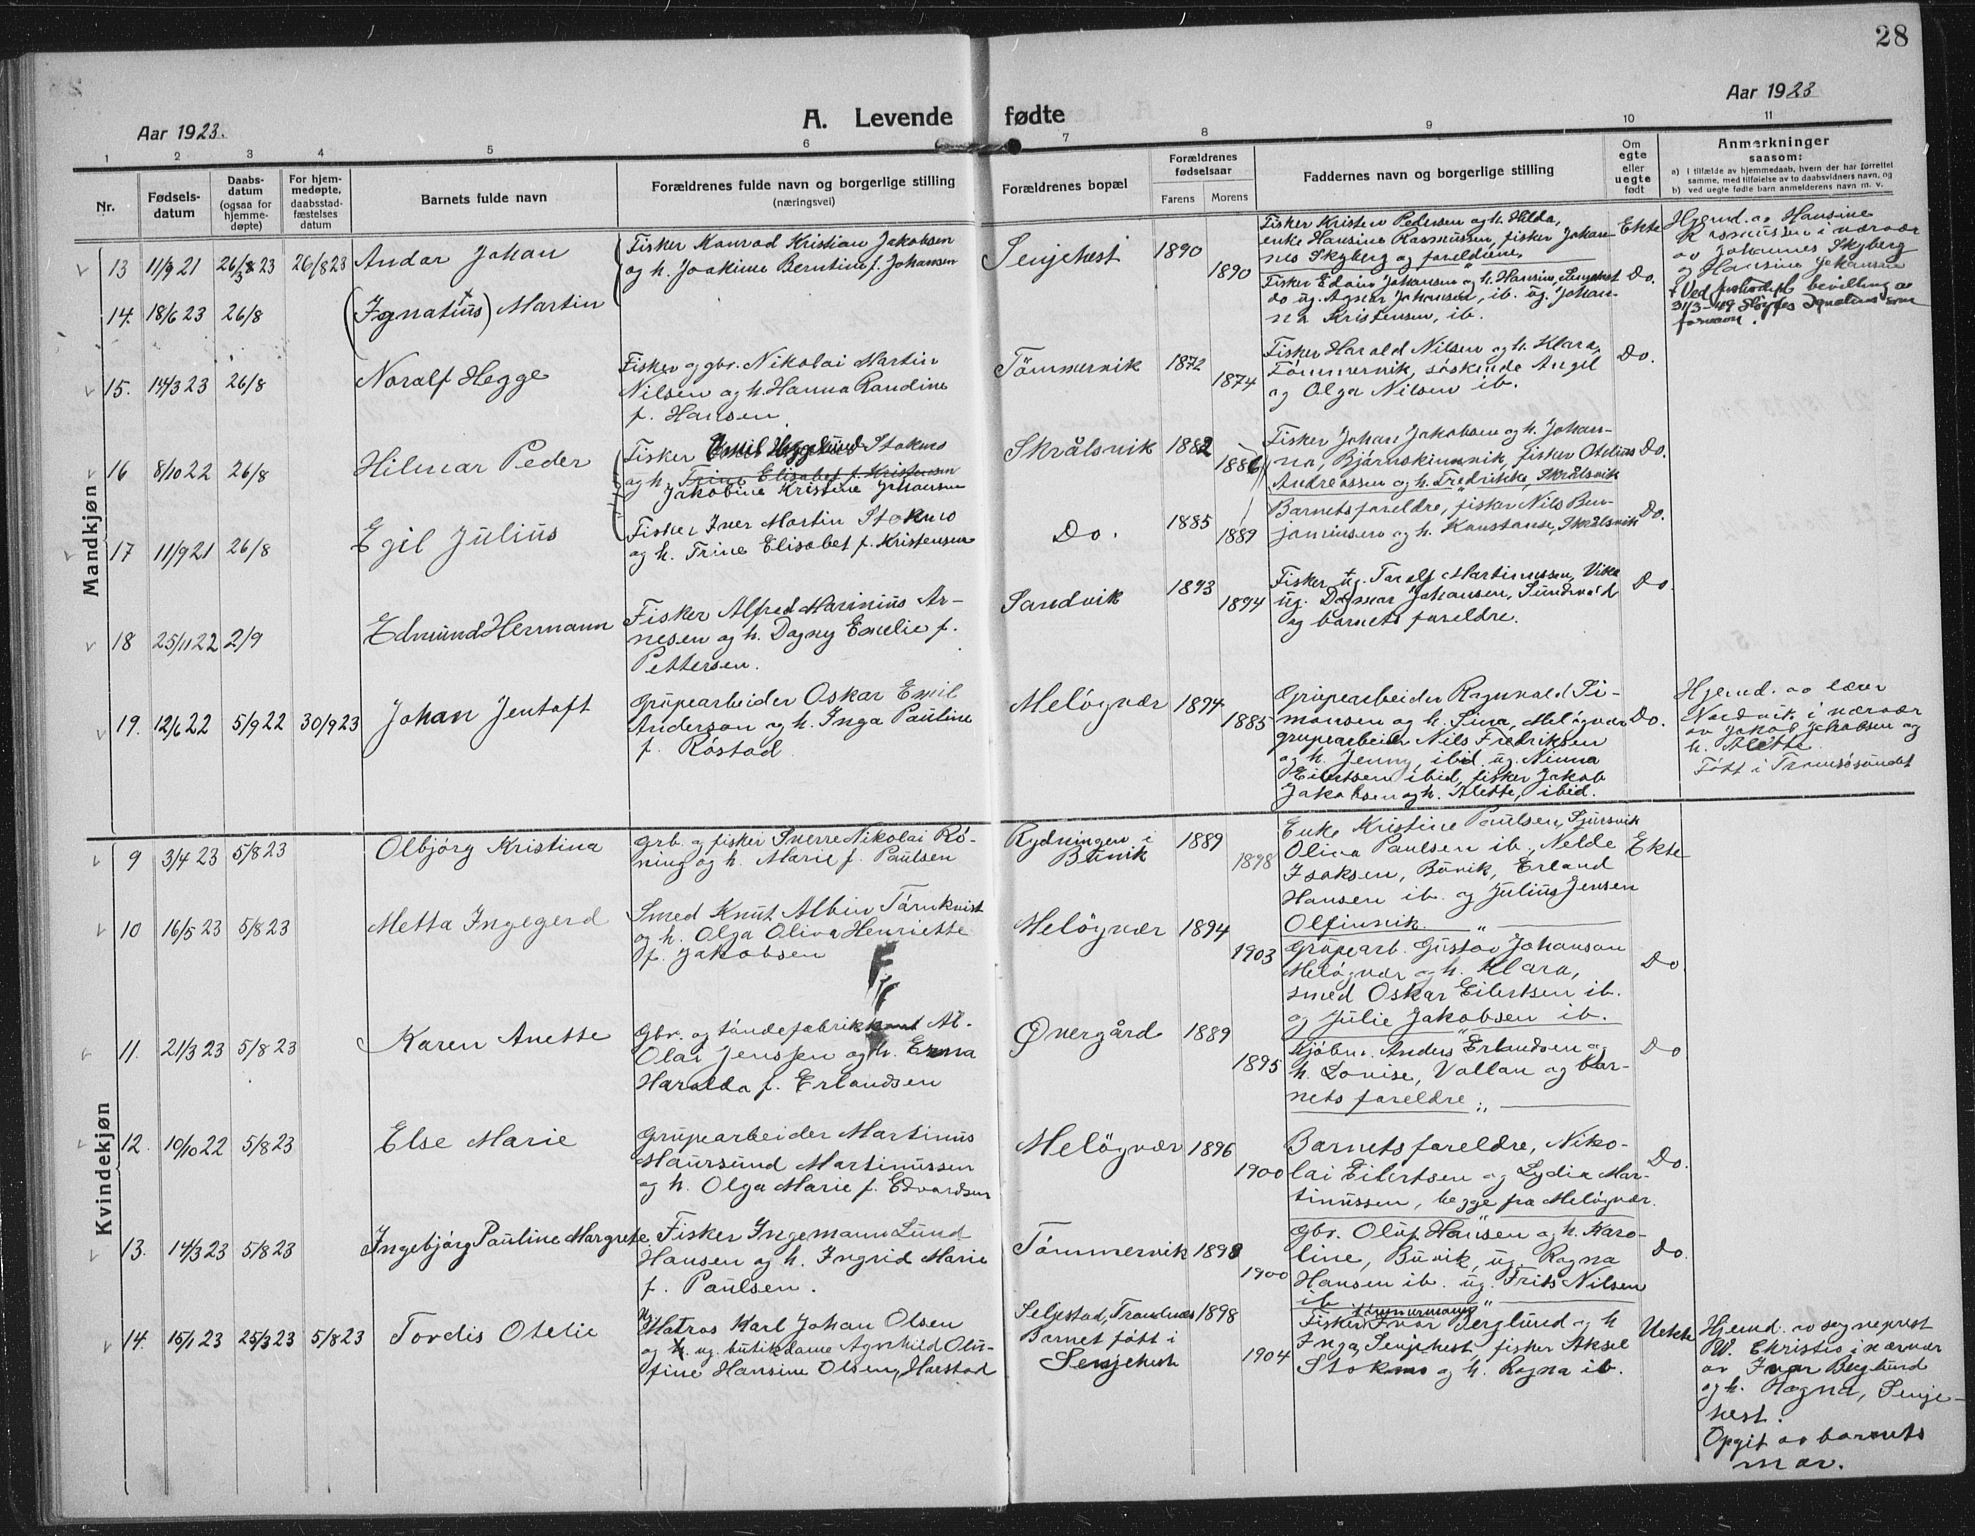 28
Aar 1923.
A. Levende fødte
Aar 1923
1 2 3 4 5 6 7 8 9 10 11
Nr.
Fødsels-
datum
Daabs-
datum
(ogsaa for
hjemme-
døpte)
For hjem-
medøpte,
daabsstad-
fæstelses
datum
Barnets fulde navn
Forældrenes fulde navn og borgerlige stilling
(næringsvei)
Forældrenes bopæl
Forældrenes
fødselsaar
Farens Morens
Faddernes navn og borgerlige stilling
Om
egte
eller
uegte
født
Anmerkninger
saasom:
a) i tilfælde av hjemmedaab, hvem der har forrettet
samme, med tilføielse av to daabsvidners navn, og
b) ved uegte fødte barn anmelderens navn m. v.
Mandkjøn
13 11/9 21 26/8 23 26/8 23 Andor Johan
Fisker Konrad Kristian Jakobsen
og h. Joakime Berntine f. Johansen
Senjehest 1890 1890
Fisker Kristen Pedersen og h. Hilda,
enke Hansine Rasmussen, fisker Johan-
nes Skyberg og foreldrene.
Ekte
Hjemd. av Hansine
Rasmussen i nærvær
av Johannes Skyberg
og Hansine Johansen
14. 18/6 23 26/8 (Ignatius) Martin
Fisker Edvin Johansen og h. Hansine, Senjehest
do ug. Agnar Johansen, ib. ug. Johan-
na Kristensen, ib.
Do.
+ Ved bevilling av
31/3-49 sløyfes Ignatius som
fornavn.
15. 14/3 23 26/8 Noralf Hegge
Fisker og gbr. Nikolai Martin
Nilsen og h. Hanna Randine
f. Hansen
Tömmervik 1872 1874
Fisker Harald Nilsen og h. Klara,
Tömmervik, söskende Angel
og Olga Nilsen ib.
Do.
16 8/10 22 26/8 Hilmar Peder
Fisker Emil Hegelund Stokmo
og h. Trine Elisabet f. Kristensen
Jakobine Kristine Johansen
Skrålsvik 1882 1886
Fisker Johan Jakobsen og h. Johan-
na, Bjørnskinnvik, fisker Otelius
Andreassen og h. Fredrikke, Skrålsvik
Do.
17 11/9 21 26/8 Egil Julius
Fisker Iver Martin Stokmo
og h. Trine Elisabet f. Kristensen
Do. 1885 1889
Barnets foreldre, fisker Nils Ben-
jaminsen og h. Konstanse, Skrålsvik
Do.
18 25/11 22 2/9 Edmund Hermann
Fisker Alfred Marinius Ar-
nesen og h. Dagny Emelie f.
Pettersen.
Sandvik 1893 1894
Fisker ug. Toralf Martinussen, Vika
ug. Dagmar Johansen, Sundvold
og barnets foreldre.
Do
19. 12/6 22 5/9 22 30/9 23 Johan Jentoft
Grupearbeider Oskar Emil
Anderson og h. Inga Pauline
f. Röstad
Melögvær 1894 1885
Grupearbeider Ragnvald Si-
monsen og h. Sina, Melögvær
grupearbeider Nils Fredriksen
og h. Jenny, ibid. ug. Ninna
Eilertsen ibid, fisker Jakob
Jakobsen og h. Alette, ibid.
Do.
Hjemd. av lærer
Nordvik i nærvær
av Jakob Jakobsen og
h. Alette.
Född i Tromsösundet
Kvindekjøn
9 3/4 23 5/8 23 Olbjörg Kristina
Grb. og fisker Sverre Nikolai Rö-
ning og h. Marie f. Paulsen
Rydningen i
Buvik
1889 1898
Enke Kristine Paulsen, Sjursvik
Oliva Paulsen ib., Nelde
Isaksen, Buvik, Erland
Hansen ib. og Julius Jensen
Olfinvik.
Ekte
10 16/5 23 5/8 23 Metta Ingegerd
Smed Knut Albin Törnkvist
og h. Olga Oliva Henriette
f. Jakobsen
Melögvær 1894 1903
Grupearb. Gustav Johanson
Melögvær og h. Klara,
smed Oskar Eilertsen ib.
og Julie Jakobsen ib.
Do.
11. 21/3 23 5/8 23 Karen Anette
Gbr. og töndefabrikkant Al-
Olai Jenssen og h. Erna
Haralda f. Erlandsen
Øvergård 1889 1895
Kjöbm. Anders Erlandsen og
h. Lovise, Vollan og bar-
nets foreldre
Do
12. 10/10 22 5/8 23 Else Marie
Grupearbeider Martinus
Maursund Martinussen
og h. Olga Marie f. Edvardsen
Melögvær 1896 1900
Barnets foreldre, Niko-
lai Eilertsen og Lydia Mar-
tinussen, begge fra Melögvær.
Do.
13. 14/3 23 5/8 23 Ingebjörg Pauline Margrete
Fisker Ingemann Lund
Hansen og h. Ingrid Marie
f. Paulsen.
Tömmervik 1898 1900
Gbr. Oluf Hansen og h. Karo-
line, Buvik, ug. Ragna
Hansen ib. ug. Frits Nilsen
ib
Do.
14. 15/1 23 25/3 23 5/8 23 Tordis Otelie
Matros Karl Johan Olsen
og ug. butikdame Agnhild Olu-
fine Hansine Olsen, Harstad
Seljestad, Trondenes
Barnet fött i
Senjehest
1898 1904
tömmermann
Fisker Ivar Berglund og h
Inga, Senjehest, fisker Aksel
Stokmo og h. Ragna ib.
Uekte
Hjemd. av sogneprest
W. Christie i nærvær
av Ivar Berglund
og h. Ragna, Senje-
hest.
Opgit av barnets
mor.